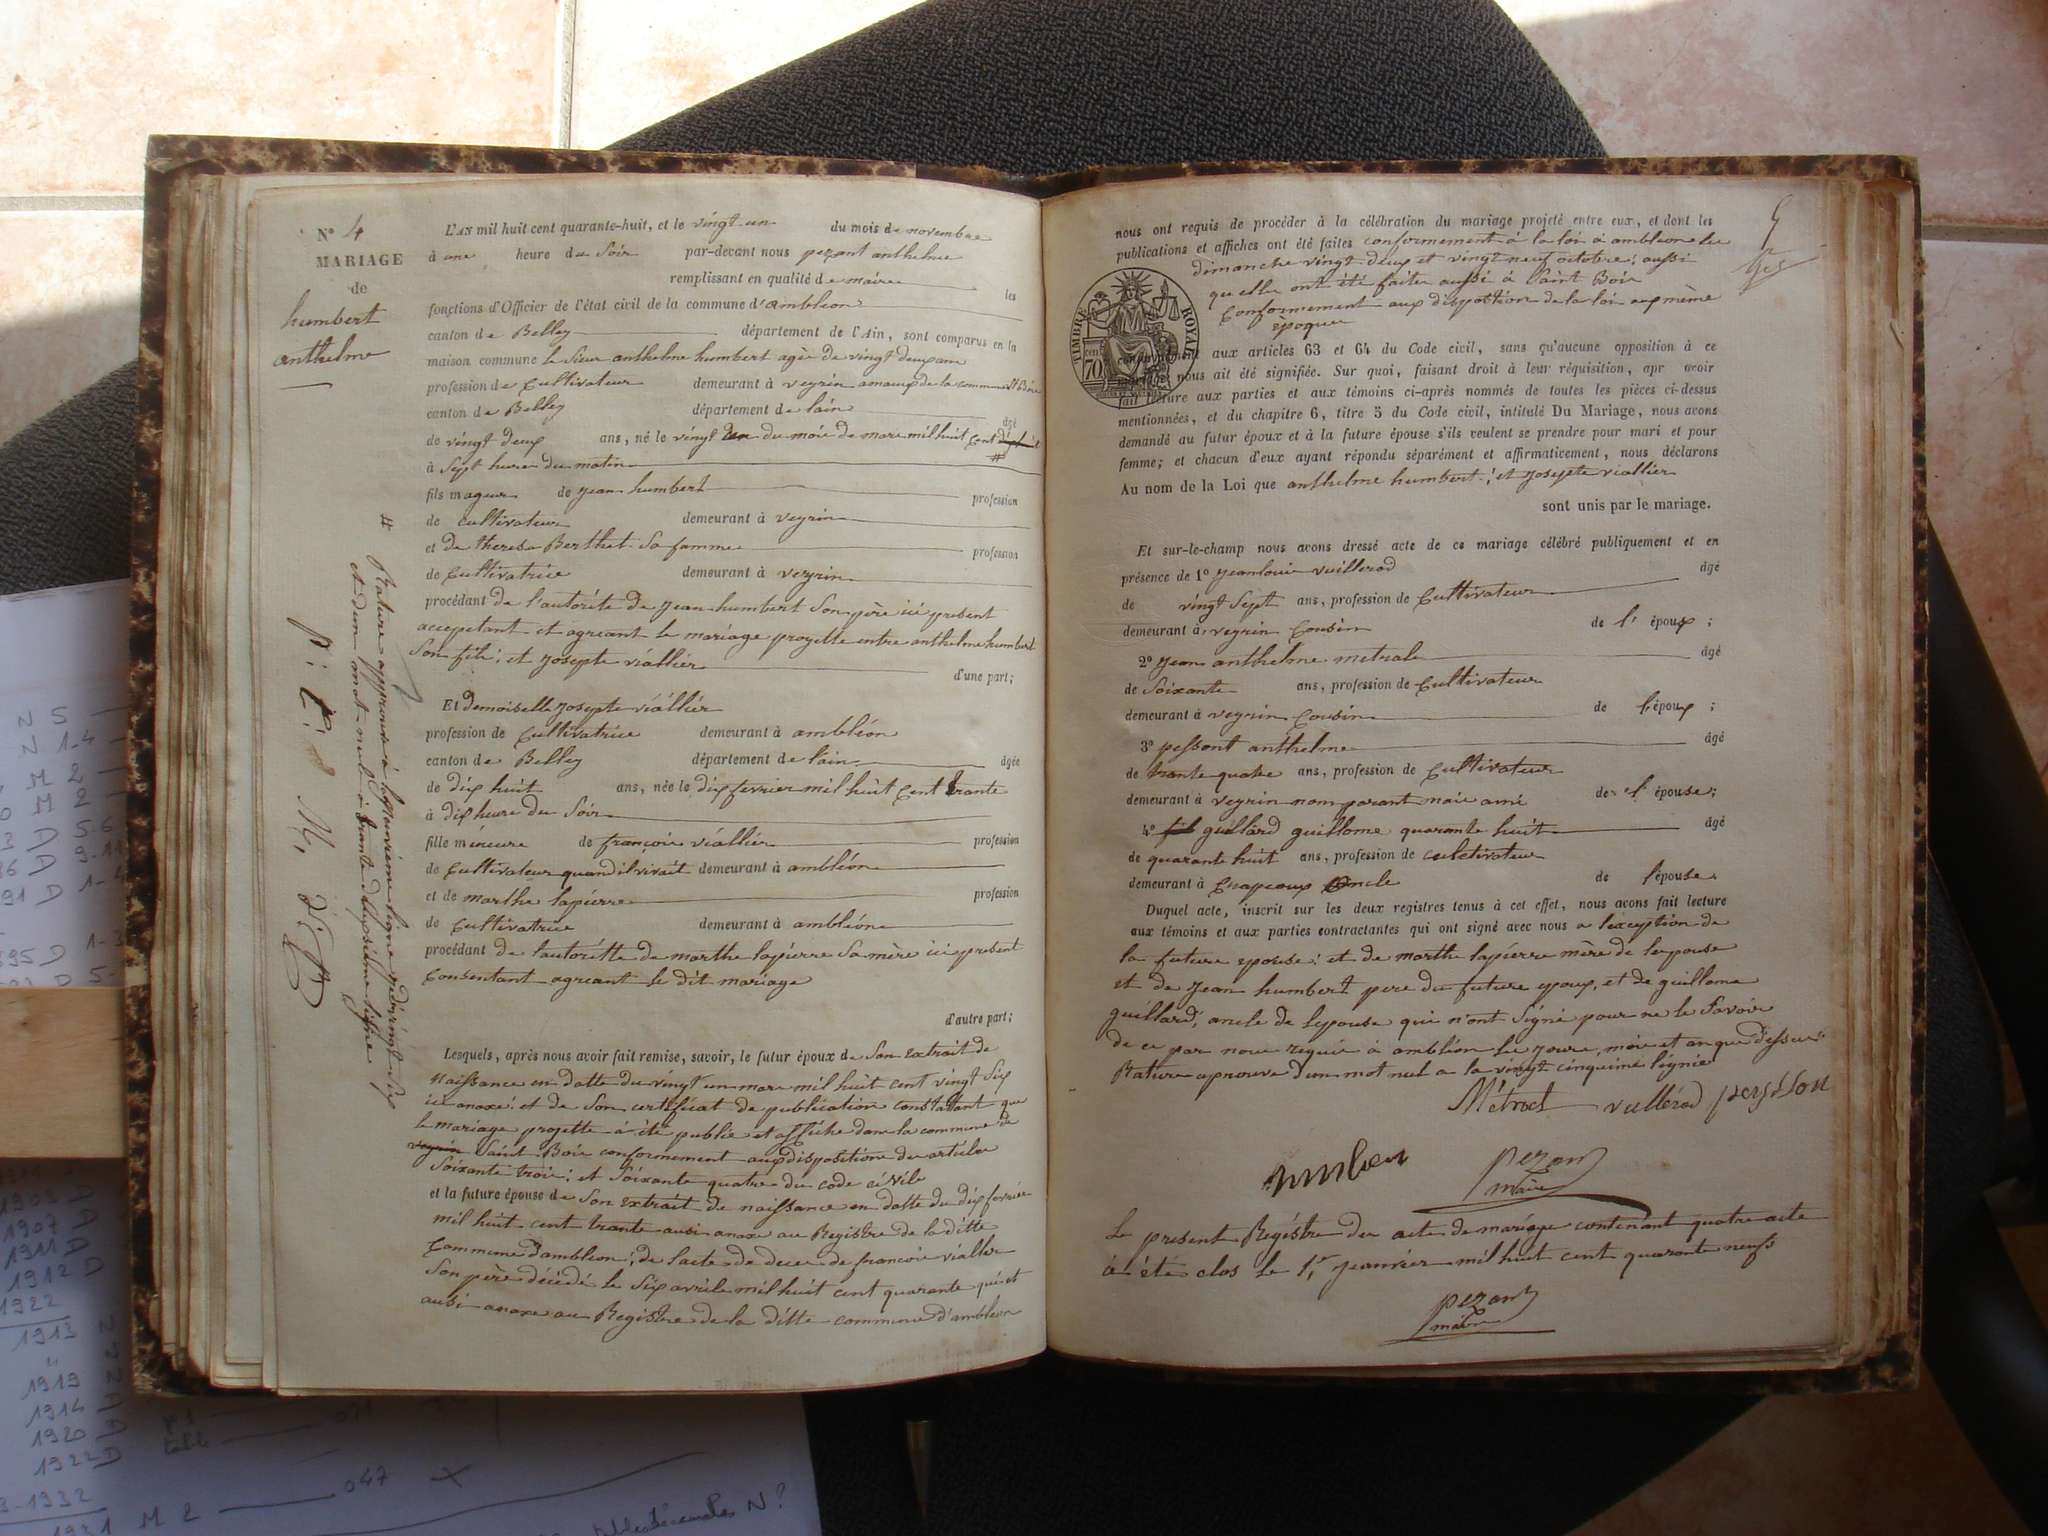 N° 4
MARIAGE
de
humbert
anthelme
L'AN mil huit cent quarante-huit, et le vingt un du mois de novembre
à une heure du Soir par-devant nous pezant anthelme
remplissant en qualité de maire les
fonctions d'Officier de l'état civil de la commune d'ambléon
canton de Belley département de l'Ain, sont comparus en la
maison commune le Sieur anthelme humbert agée de vingt deux ans
profession de Cultivateur demeurant à veyrin amaux de la commune St Bois
canton de Belley département de lain âgé
de vingt deux ans, né le vingt un du mois de mars mil huit Cent
à Sept heure du matin
fils mageur de jean humbert profession
de cultivateur demeurant à veyrin
et de therese Berthet Sa famme profession
de Cultivatrice demeurant à veyrin
procédant de l'autorité de jean humbert Son père ici present
acceptant et agréant le mariage proyetté entre anthelme humbert
Son fils; et josepte viallier d'une part;
Et demoiselle josepte viallier
profession de Cultivatrice demeurant à ambléon
canton de Belley département de lain âgée
de dix huit ans, née le dix fevrier mil huit Cent trante
à dix heure du Soir
fille mineure de françois viallier profession
de Cultivateur quand il vivait demeurant à ambléon
et de marthe lapierre profession
de Cultivatrice demeurant à ambléon
procédant de l'autorité de marthe lapierre Sa mère ici present
Consentant agréant le dit mariage
d'autre part;
Lesquels, après nous avoir fait remise, savoir, le futur époux de Son extrait de
Naissance en datte du vingt un mars mil huit cent vingt Six
ici anaxé; et de Son certificat de publication constattant que
le mariage projetté à été publié et affiché dans la commune de
veyrin Saint Bois conformement aux dispositions des articles
Soixante trois; et Soixante quatre du code civile
et la future épouse de Son extrait de naissance en datte du dix fevrier
mil huit cent trante aussi anaxe au Registre de la ditte
Commune d'ambleon; de l'acte de deces de françois viallier
Son père décédé le Six avrile mil huit cent quarante
aussi anaxe au Registre de la ditte commune d'ambleon
# Rature approuvé à la quatorzieme ligne
et d'un mot nul à trante
nous ont requis de procéder à la célébration du mariage projeté entre eux, et dont les
publications et affiches ont été faites conformement à la loi à ambleon les
dimanche vingt deux et vingt neuf octobre; aussi
quelle ont été faites aussi à Saint Bois
Conformement aux disposition de la loi aux même
époques
TIMBRE ROYAL
70
conformément aux articles 63 et 64 du Code civil, sans qu'aucune opposition à ce
mariage nous ait été signifiée. Sur quoi, faisant droit à leur réquisition, apr avoir
fait lecture aux parties et aux témoins ci-après nommés de toutes les pièces ci-dessus
mentionnées, et du chapitre 6, titre 5 du Code civil, intitulé Du Mariage, nous avons
demandé au futur époux et à la future épouse s'ils veulent se prendre pour mari et pour
femme; et chacun d'eux ayant répondu séparément et affirmativement, nous déclarons
Au nom de la Loi que anthelme humbert; et josepte viallier
sont unis par le mariage.
Et sur-le-champ nous avons dressé acte de ce mariage célébré publiquement et en
présence de 1° jean louis vuillerod âgé
de vingt Sept ans, profession de Cultivateur
demeurant à veyrin Cousin de l' époux;
2° jean anthelme metrale âgé
de Soixante ans, profession de Cultivateur
demeurant à veyrin Cousin de l'époux;
3° pessont anthelme âgé
de trante quatre ans, profession de Cultivateur
demeurant à veyrin non parant mais ami de l' épouse;
4° guillard guillome quarante huit âgé
de quarante huit ans, profession de culctivateur
demeurant à Chapeaux Oncle de l'épouse
Duquel acte, inscrit sur les deux registres tenus à cet effet, nous avons fait lecture
aux témoins et aux parties contractantes qui ont signé avec nous a l'exception de
la future epouse; et de marthe lapierre mère de lepouse
et de jean humbert pere du future epoux, et de guillome
guillard, oncle de lepouse qui n'ont Signé pour ne le Savoir
de ce par nous requis à ambléon les jours, mois et an que dessus
Rature aprouvé d'un mot nul a la vingt cinquime lignie
Métral vullérod peysson
humber pezant
maire
Le present Registre des acte de mariage contenant quatre acte
à été clos le 1er jeanvier mil huit cent quarante neufs
pezant
maire